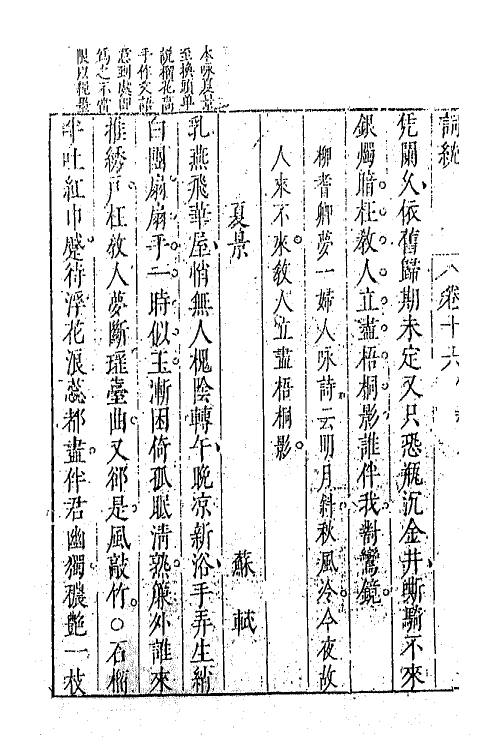 詞統　卷十六
凭闌久依舊歸期未定又只恐瓶沉金井嘶騎不來
銀燭暗枉敎人立盡梧桐影誰伴我對鸞鏡
柳耆卿夢一婦人咏詩云明月斜秋風冷今夜故
人來不來敎人立盡梧桐影
夏景　蘇軾
乳燕飛華屋悄無人槐陰轉午晚凉新浴手弄生綃
白團扇扇手一時似玉漸困倚孤眠清熟簾外誰來
推綉戶枉敎人夢斷瑤臺曲又卻是風敲竹○石榴
半吐紅巾蹙待浮花浪蕊都盡伴君幽獨穠艷一枝
本咏夏景
至換頭單
說榴花高
手作文語
意到處卽
爲之不當
限以繩墨